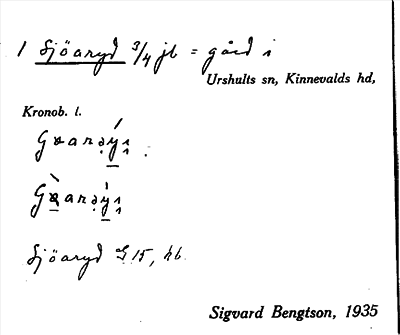 1 Sjöaryd 3/4 jb = gård i
Urshults sn, Kinnevalds hd,
Kronob. l.
Sjöaryd G 15, hb
Sigvard Bengtson, 1935